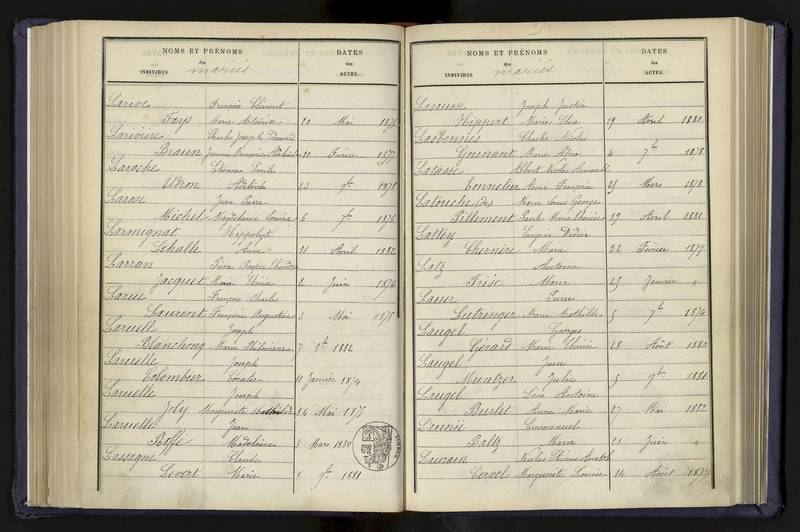 NOMS ET PRÉNOMS DATES
des des
INDIVIDUS mariés ACTES.
Larive François Clément
Fays Marie 20 Mai 1875
Larivière Charles Joseph Edmond
Braun Jeanne Françoise 20 Février 1877
Laroche Etienne Emile
Adelaide 23 9bre 1878
Larose Jean Pierre
Michel Magdelaine Louise 6 7bre 1876
Larmignat Hippolyte
Lehalle Anna 11 Avril 1882
Larran Pierre Prosper Théodore
Jacquet Marie 2 Juin 1874
Larue François Charles
Laurent Françoise Augustine 3 Mai 1875
Laruell Joseph
Blanchong Marie Philomène 7 8bre 1882
Laruelle Joseph
Colombier Coralie 10 Janvier 1874
Laruelle Joseph
Joly Marguerite Mathilde 24 Mai 1875
Laruelle Jean
Madeleine 3 Mars 1880
Lassagne Claude
Levert Marie 8 9bre 1881
NOMS ET PRÉNOMS DATES
des des
INDIVIDUS mariés ACTES.
Lasausse Joseph Justin
Hippert Marie 19 Avril 1880
Lasbennes Charles Nicolas
Marie 4 7bre 1878
Albert Nicolas
Tonnelier Anne Françoise 25 Mars 1878
Latouche (de) Marie Louis George
Pillement Paule Marie Thérèse 19 Avril 1881
Eugène Didier
Chernère Marie 22 Février 1879
Latz Antoine
Frise Marie 25 Janvier "
Lauer Pierre
Lutringer Marie Mathilde 5 7bre 1874
Laugel Georges
Gérard Marie 28 Août 1880
Laugel Jean
Muntzer Julie 5 9bre 1881
Laugel Léon Antoine
Burlet Anne Marie 27 Mai 1882
Emmanuel
Baltz Marie 21 Juin "
Laurain Nicolas Etienne Anatole
Cervel Marguerite Louise 14 Août